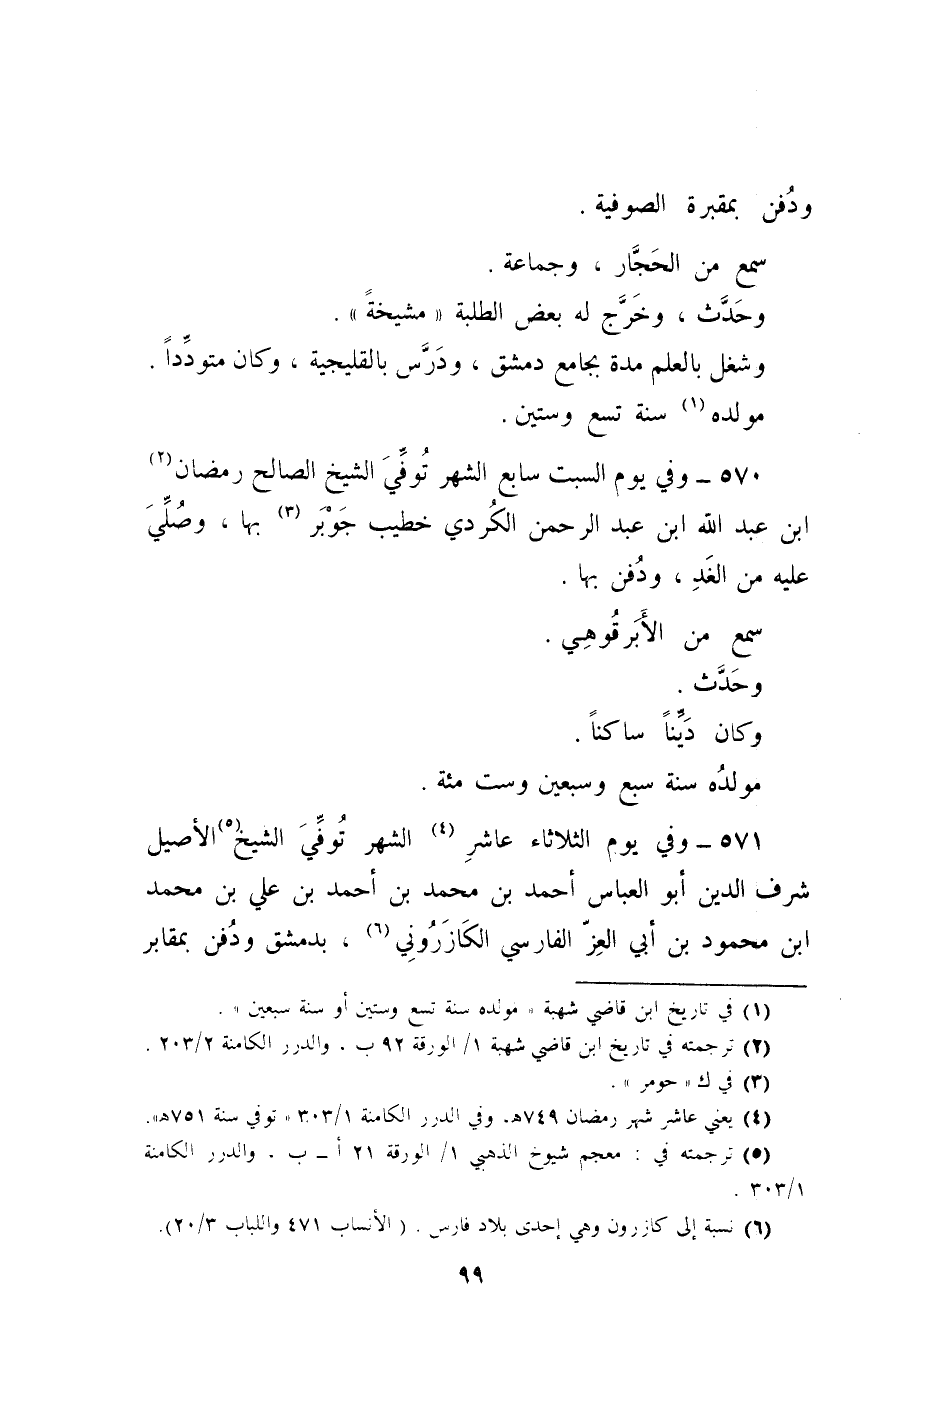 ودُفن بمقبرة الصوفية .
سمع من الحَجَّار ، وجماعة .
وحَدَّث ، وخَرَّج له بعض الطلبة « مشيخةً » .
وشغل بالعلم مدة بجامع دمشق ، ودَرَّس بالقليجية ، وكان متودِّداً .
مولده (١) سنة تسع وستين .
٥٧٠ ـ وفي يوم السبت سابع الشهر تُوفِّيَ الشيخ الصالح رمضان (٢)
ابن عبد الله ابن عبد الرحمن الكُردي خطيب جَوْبَر (٣) بها ، وصُلِّيَ
عليه من الغَدِ ، ودُفن بها .
سمع من الأَبَرقُوهِي .
وحَدَّث .
وكان دَيِّناً ساكناً .
مولدُه سنة سبع وسبعين وست مئة .
٥٧١ ـ وفي يوم الثلاثاء عاشرِ (٤) الشهر تُوفِّيَ الشيخ(٥) الأصيل
شرف الدين أبو العباس أحمد بن محمد بن أحمد بن علي بن محمد
ابن محمود بن أبي العِزّ الفارسي الكَازَرُوني (٦) ، بدمشق ودُفن بمقابر
(١) في تاريخ ابن قاضي شهبة « مولده سنة تسع وستين أو سنة سبعين » .
(٢) ترجمته في تاريخ ابن قاضي شهبة ١/ الورقة ٩٢ ب . والدرر الكامنة ٢٠٣/٢ .
(٣) في ك « حومر » .
(٤) يعني عاشر شهر رمضان ٧٤٩هـ. وفي الدرر الكامنة ٣٠٣/١ « توفي سنة ٧٥١هـ».
(٥) ترجمته في : معجم شيوخ الذهبي ١/ الورقة ٢١ أ ـ ب . والدرر الكامنة
٣٠٣/١ .
(٦) نسبة إلى كازرون وهي إحدى بلاد فارس . ( الأنساب ٤٧١ واللباب ٢٠/٣).
٩٩